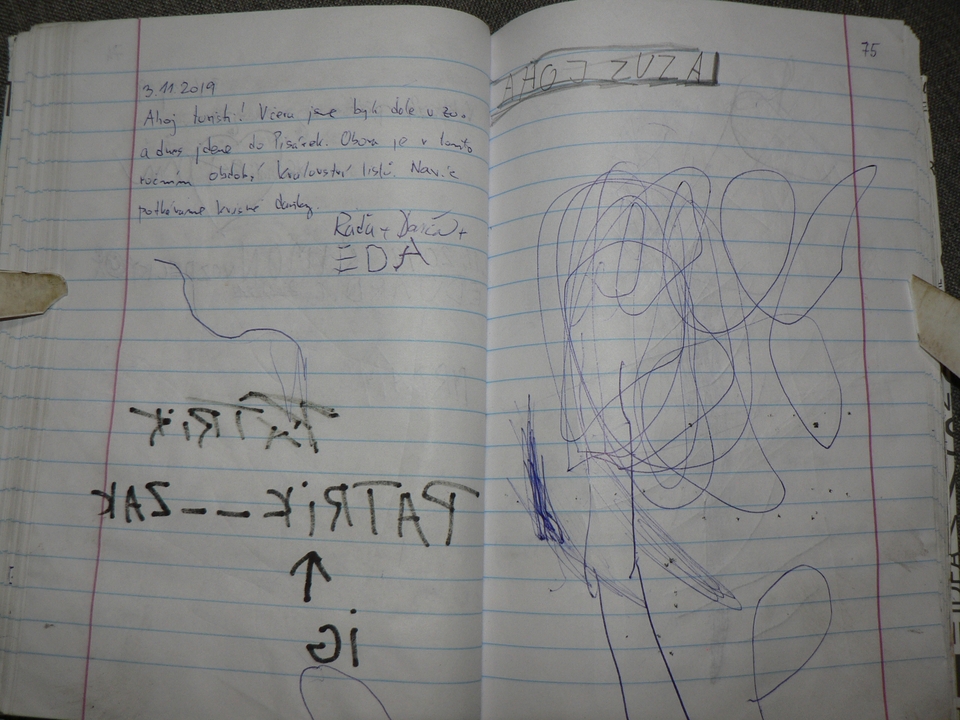 3.11.2019
Ahoj turisti! Včera jsme byli dole v zoo.
a dnes jdeme do Pisárek. Obora je v tomto
ročním období království listů. Navíc
potkáváme krásné daňky.
Radů + +
EDA
PATRiK
PATRiK__ZAK
iG
75
AHOJ ZUZA